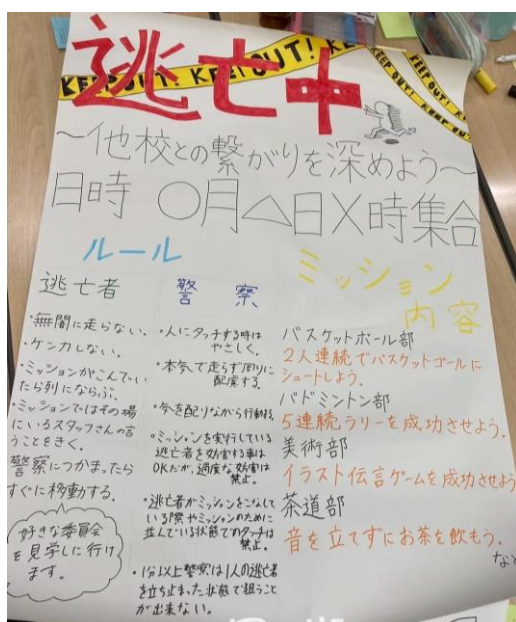 KEEP OUT! KEEP OUT!
KEEP OUT!
KEEP OUT!
逃亡中
〜他校との繋がりを深めよう〜
日時 ○月△日X時集合
ルール
逃亡者
・無闇に走らない。
・ケンカしない。
・ミッションがこんでい
たら列にならぶ。
・ミッションではその場
にいるスタッフさんの言
うことをきく。
警察につかまったら
すぐに移動する。
好きな委員会
を見学しに行け
ます。
警察
・人にタッチする時は
やさしく。
・本気で走らず周りに
配慮する。
・気を配りながら行動する。
・ミッションを実行している
逃亡者を妨害する事は
OKだが、過度な妨害は
禁止。
・逃亡者がミッションをこなして
いる際やミッションのために
並んでいる状態でのタッチは
禁止。
・1分以上警察は1人の逃亡者
を立ち止まった状態で狙うこと
が出来ない。
ミッション
内容
バスケットボール部
2人連続でバスケットゴールに
シュートしよう。
バドミントン部
5連続ラリーを成功させよう。
美術部
イラスト伝言ゲームを成功させよう
茶道部
音を立てずにお茶を飲もう。
など